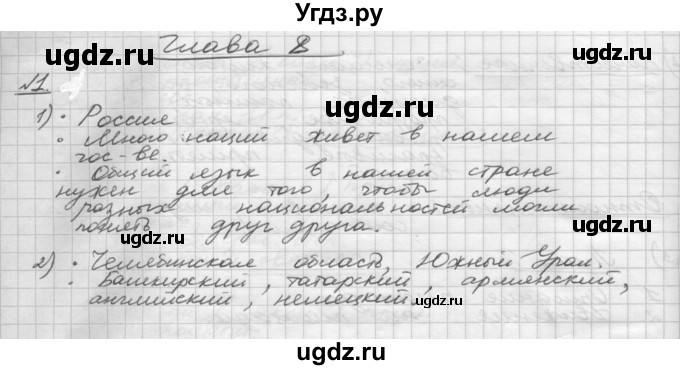 Угдз.ру
Глава 8
№1.
1) • Россия
• Много наций живет в нашем
гос-ве.
• Общий язык в нашей стране
нужен для того, чтобы люди
разных национальностей могли
понять друг друга.
2) • Челябинская область, Южный Урал.
• Башкирский, татарский, армянский,
английский, немецкий.
ugdz.ru
ugdz.ru
ugdz.ru
ugdz.ru
ugdz.ru
ugdz.ru
ugdz.ru
ugdz.ru
ugdz.ru